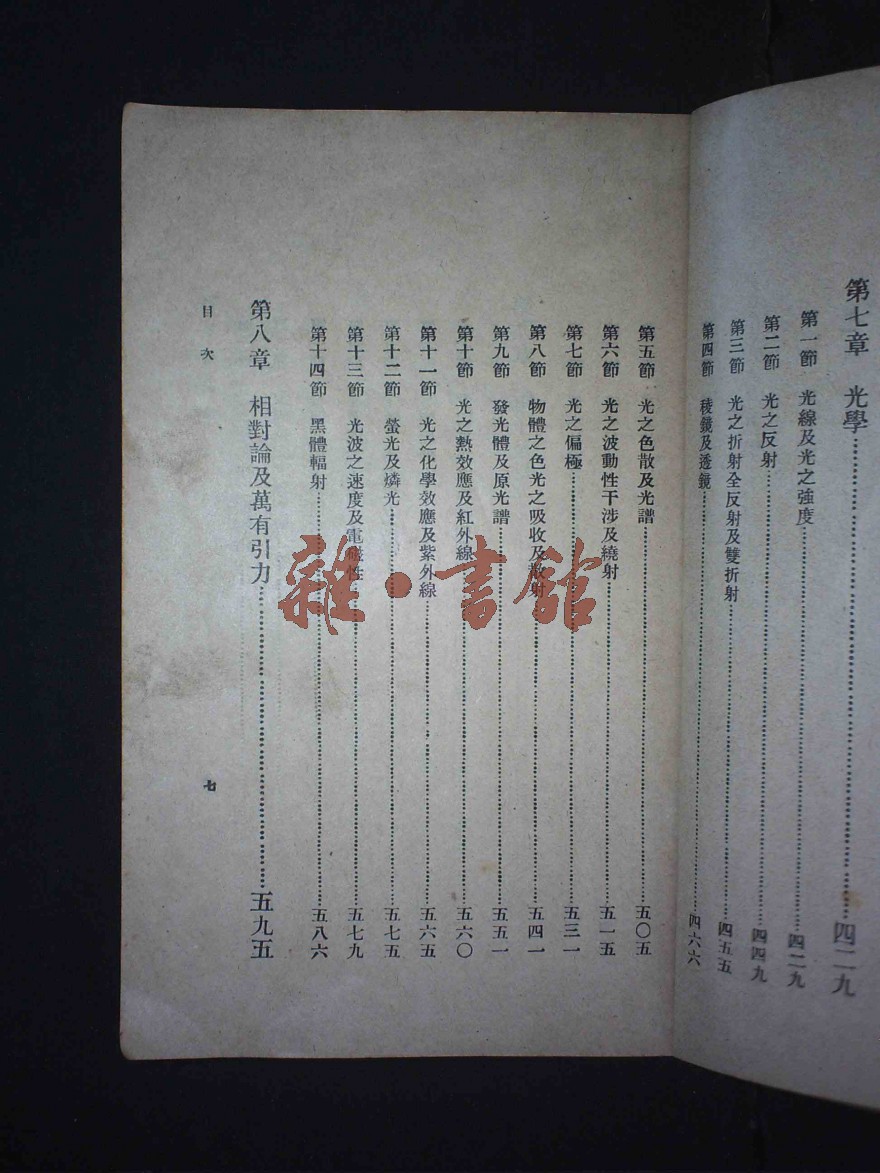 第七章　光學……四二九
第一節　光線及光之強度……四二九
第二節　光之反射……四四九
第三節　光之折射全反射及雙折射……四五五
第四節　稜鏡及透鏡……四六六
第五節　光之色散及光譜……五〇五
第六節　光之波動性干涉及繞射……五一五
第七節　光之偏極……五三一
第八節　物體之色光之吸收及散射……五四一
第九節　發光體及原光譜……五五一
第十節　光之熱效應及紅外線……五六〇
第十一節　光之化學效應及紫外線……五六五
第十二節　螢光及燐光……五七五
第十三節　光波之速度及電磁性……五七九
第十四節　黑體輻射……五八六
第八章　相對論及萬有引力……五九五
目次
七
雜·書館